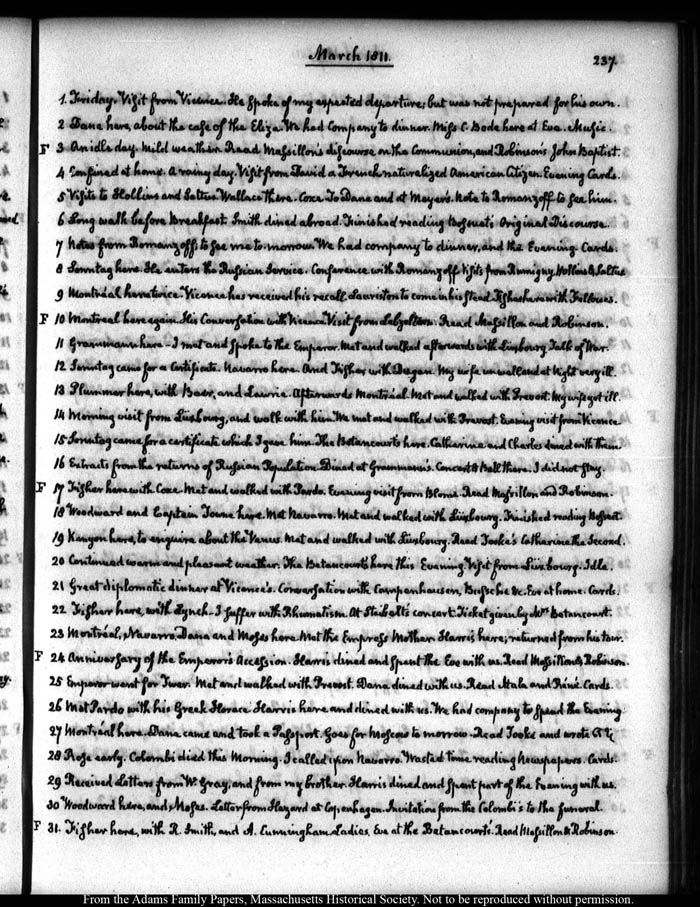 March 1811.
237
1. Friday. Visit from Vicence. He spoke of my expected departure; but was not prepared for his own.
2 Dana here, about the case of the Eliza. We had Company to dinner. Miss C. Bode here at Eve. Music.
F 3 An idle day. Mild weather. Read Massillon's discourse on the Communion, and Robinson's John Baptist.
4 Confined at home. A rainy day. Visit from David a French naturalized American Citizen. Evening Cards.
5 Visits to Hollins and Saltus. Wallace there. Coxe. To Dana and at Meyer's. Note to Romanzoff to see him.
6 Long walk before Breakfast. Smith dined abroad. Finished reading Bossuet's Original Discourse.
7 Notes from Romanzoff; to see me to-morrow. We had company to dinner, and the Evening. Cards.
8 Sonntag here. He enters the Russian Service. Conference with Romanzoff. Visits from Rumigny, Hollins & Saltus
9 Montréal here twice. Vicence has received his recall. Lauriston to come in his stead. Fisher here with Fellows.
F 10 Montreal here again. His Conversation with Vicence. Visit from Lebzeltern. Read Massillon and Robinson.
11 Granmann here - I met and spoke to the Emperor. Met and walked afterwards with Luxbourg. Talk of War.
12 Sonntag came for a Certificate. Navarro here. And Fisher with Dugan. My wife unwell and at Night very ill.
13 Plummer here, with Baer, and Lawrie. Afterwards Montréal. Met and walked with Prevost. My wife yet ill.
14 Morning visit from Luxbourg, and walk with him. We met and walked with Prevost. Evening visit from Vicence
15 Sonntag came for a certificate which I gave him. The Betancourts here. Catherine and Charles dined with them
16 Extracts from the returns of Russian Population. Dined at Granmann's. Concert & Ball there. I did not stay.
F 17 Fisher here with Coxe. Met and walked with Pardo. Evening visit from Blome. Read Massillon and Robinson.
18 Woodward and Captain Towne here. Met Navarro. Met and walked with Luxbourg. Finished reading Bossuet.
19 Kenyon here, to enquire about the Venus. Met and walked with Luxbourg. Read Tooke's Catharine the Second.
20 Continued warm and pleasant weather. The Betancourts here this Evening. Visit from Luxbourg. Idle.
21 Great diplomatic dinner at Vicence's. Conversation with Campenhausen, Bussche &c. Eve at home. Cards.
22 Fisher here, with Lynch. I suffer with Rheumatism. At Steibelt's concert. Ticket given by Mrs. Betancourt.
23 Montréal, Navarro, Dana and Moses here. Met the Empress Mother. Harris here; returned from his tour.
F 24 Anniversary of the Emperor's Accession. Harris dined and spent the Eve with us. Read Massillon & Robinson.
25 Emperor went for Twer. Met and walked with Prevost. Dana dined with us. Read Atala and Réné. Cards.
26 Met Pardo with his Greek Horace. Harris here and dined with us. We had company to spend the Evening.
27 Montréal here. Dana came and took a Passport. Goes for Moscow to morrow. Read Tooke and wrote
28 Rose early. Colombi died this Morning. I called upon Navarro. Wasted time reading Newspapers. Cards.
29 Received Letters from W. Gray, and from my brother. Harris dined and spent part of the Evening with us.
30 Woodward here, and Moses. Letter from Hazard at Copenhagen. Invitation from the Colombi's to the funeral.
F 31. Fisher here, with R. Smith, and A. Cunningham. Ladies, Eve at the Betancourts'. Read Massillon & Robinson.
From the Adams Family Papers, Massachusetts Historical Society. Not to be reproduced without permission.